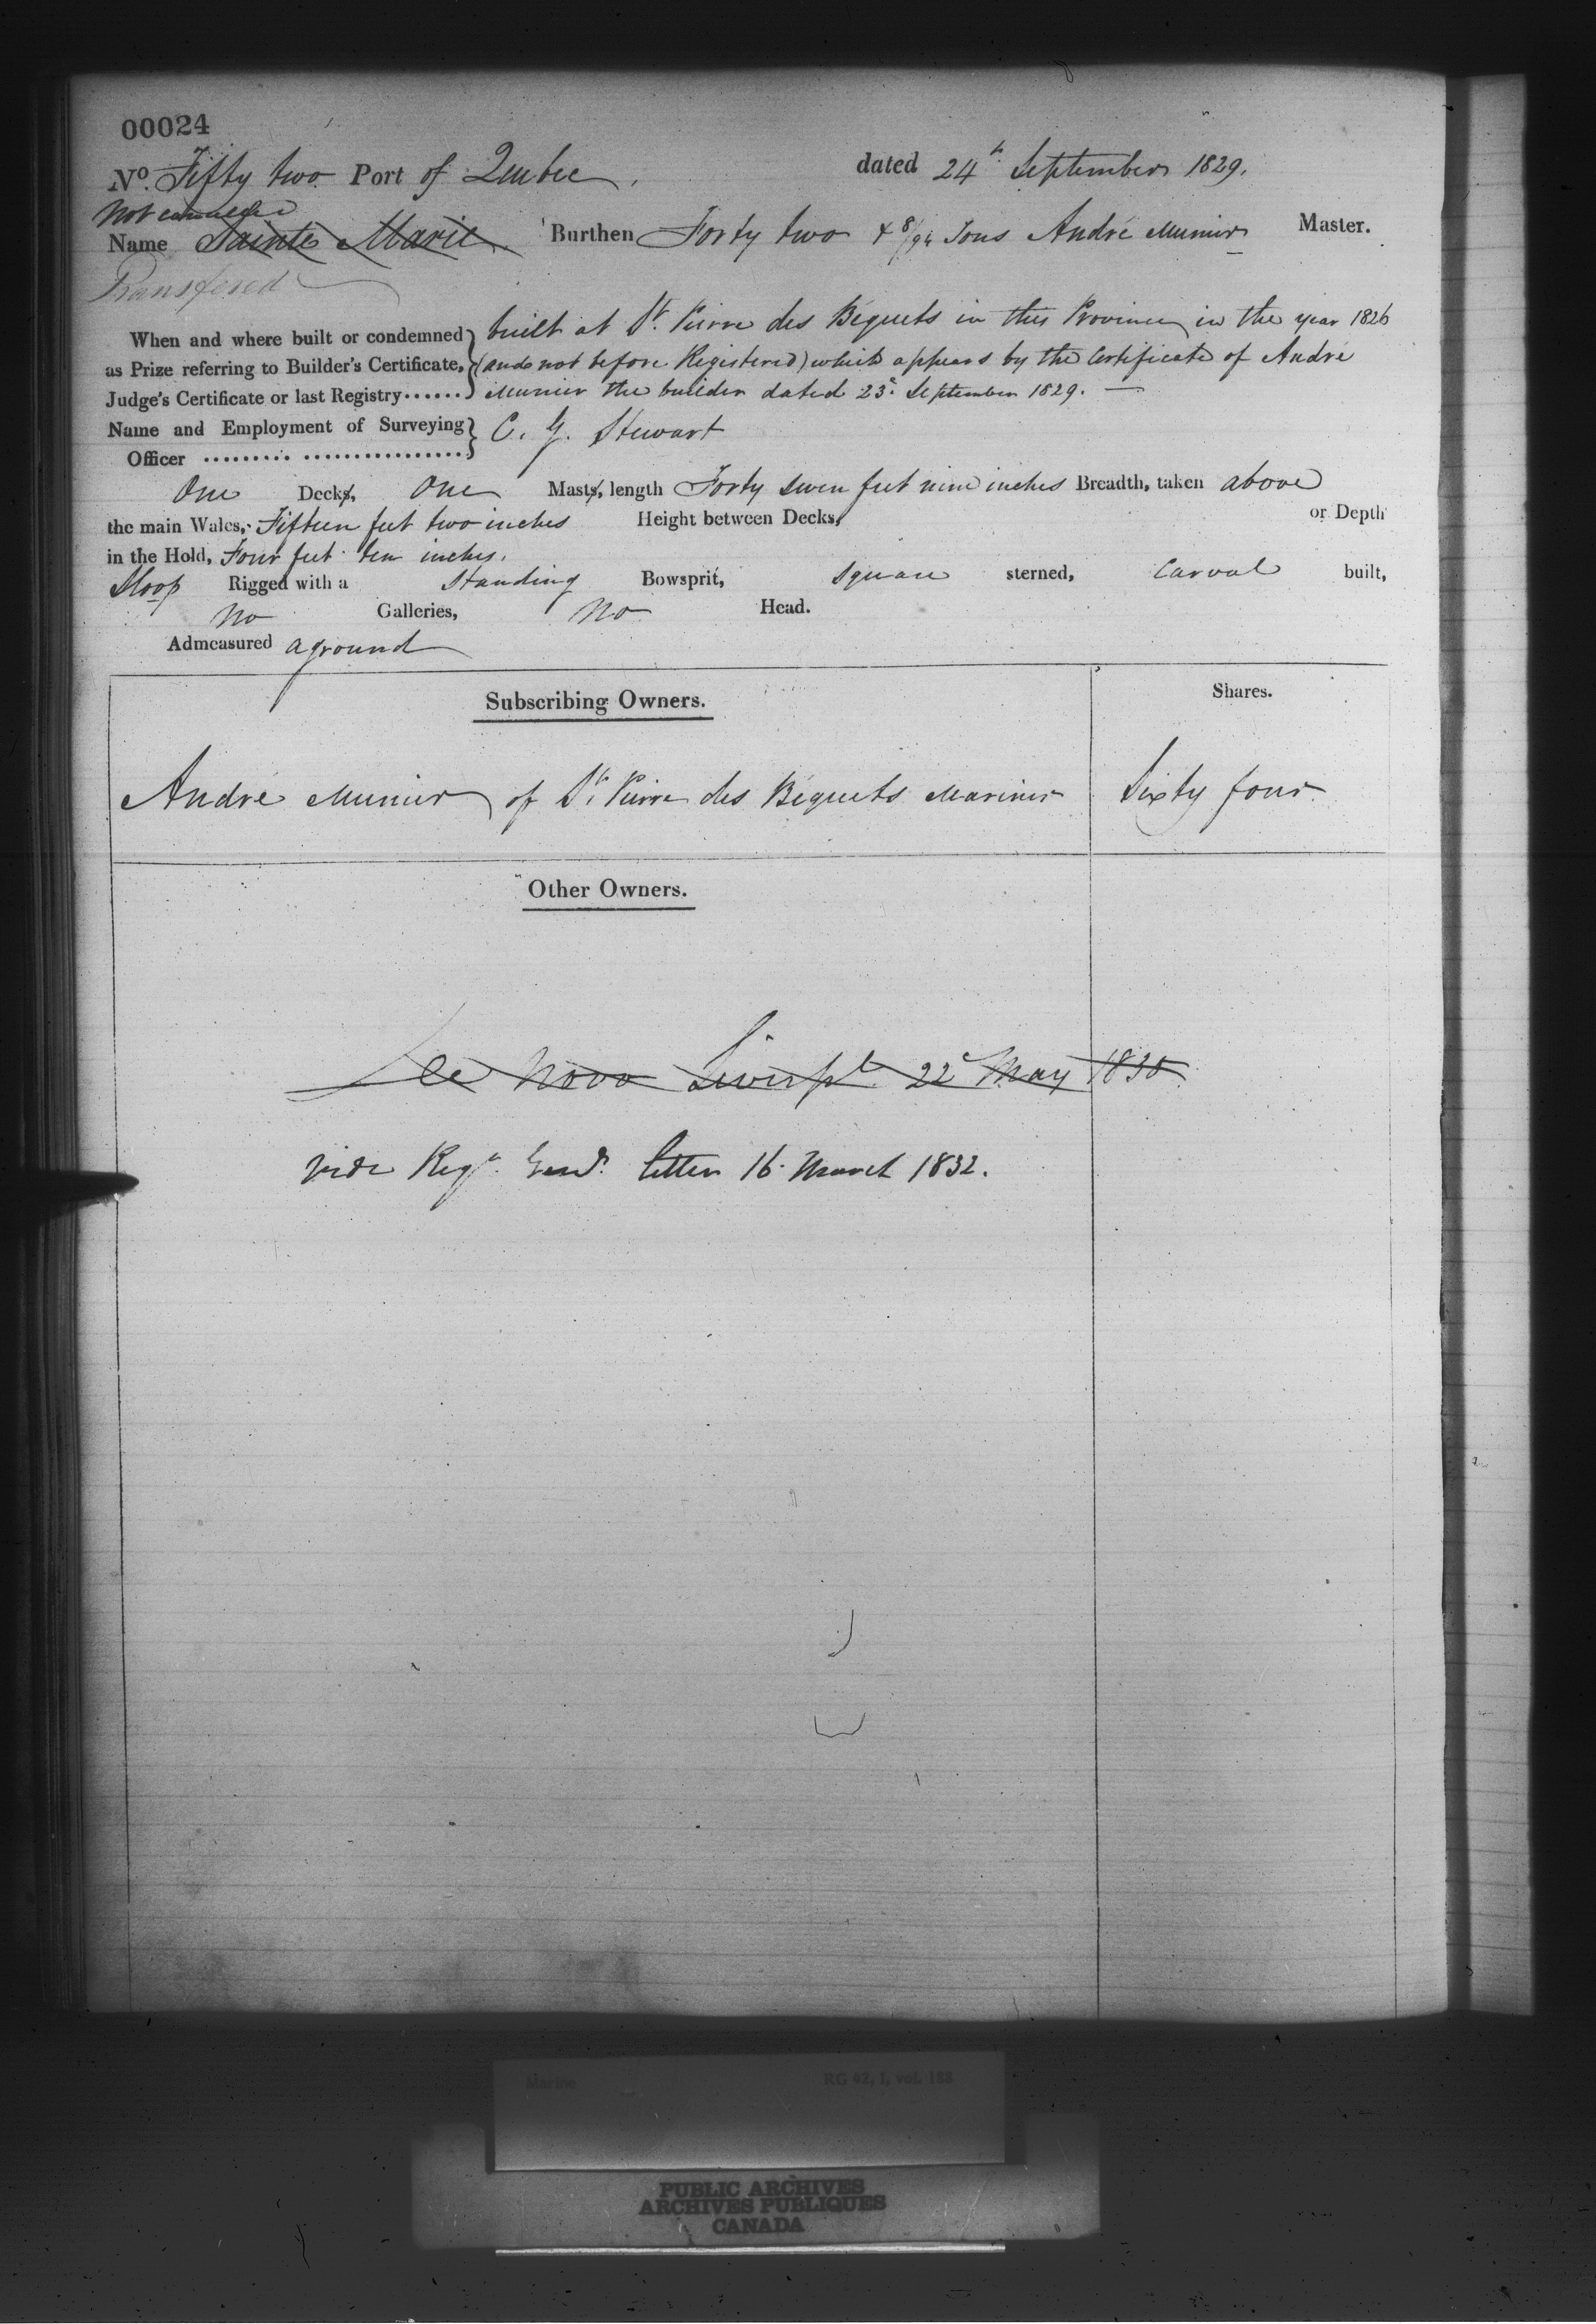 00024
No. Fifty two Port of Quebec. dated 24th September 1829.
Not cancelled
Name Sainte Marie Burthen Forty two & 8/94 Tons André Munier Master.
Transfered
When and where built or condemned as Prize referring to Builder's Certificate, Judge's Certificate or last Registry......
built at St. Pierre des Béquets in this Province in the year 1826
(and not before Registered) which appears by the Certificate of André
Munier the builder dated 23d September 1829. —
Name and Employment of Surveying Officer ......... ................
C. G. Stewart
One Decks, One Masts, length Forty seven feet nine inches Breadth, taken above
the main Wales, Fifteen feet two inches Height between Decks, or Depth
in the Hold, Four feet ten inches.
Sloop Rigged with a Standing Bowsprit, square sterned, Carvel built,
No Galleries, No Head.
Admeasured aground
Subscribing Owners. Shares.
André Munier of St. Pierre des Béquets Mariner Sixty four
Other Owners.
De Novo Liverpl 22d May 1830
vide Regr. Genl. letter 16 March 1832.
Marine RG 42, I, vol. 188
PUBLIC ARCHIVES
ARCHIVES PUBLIQUES
CANADA